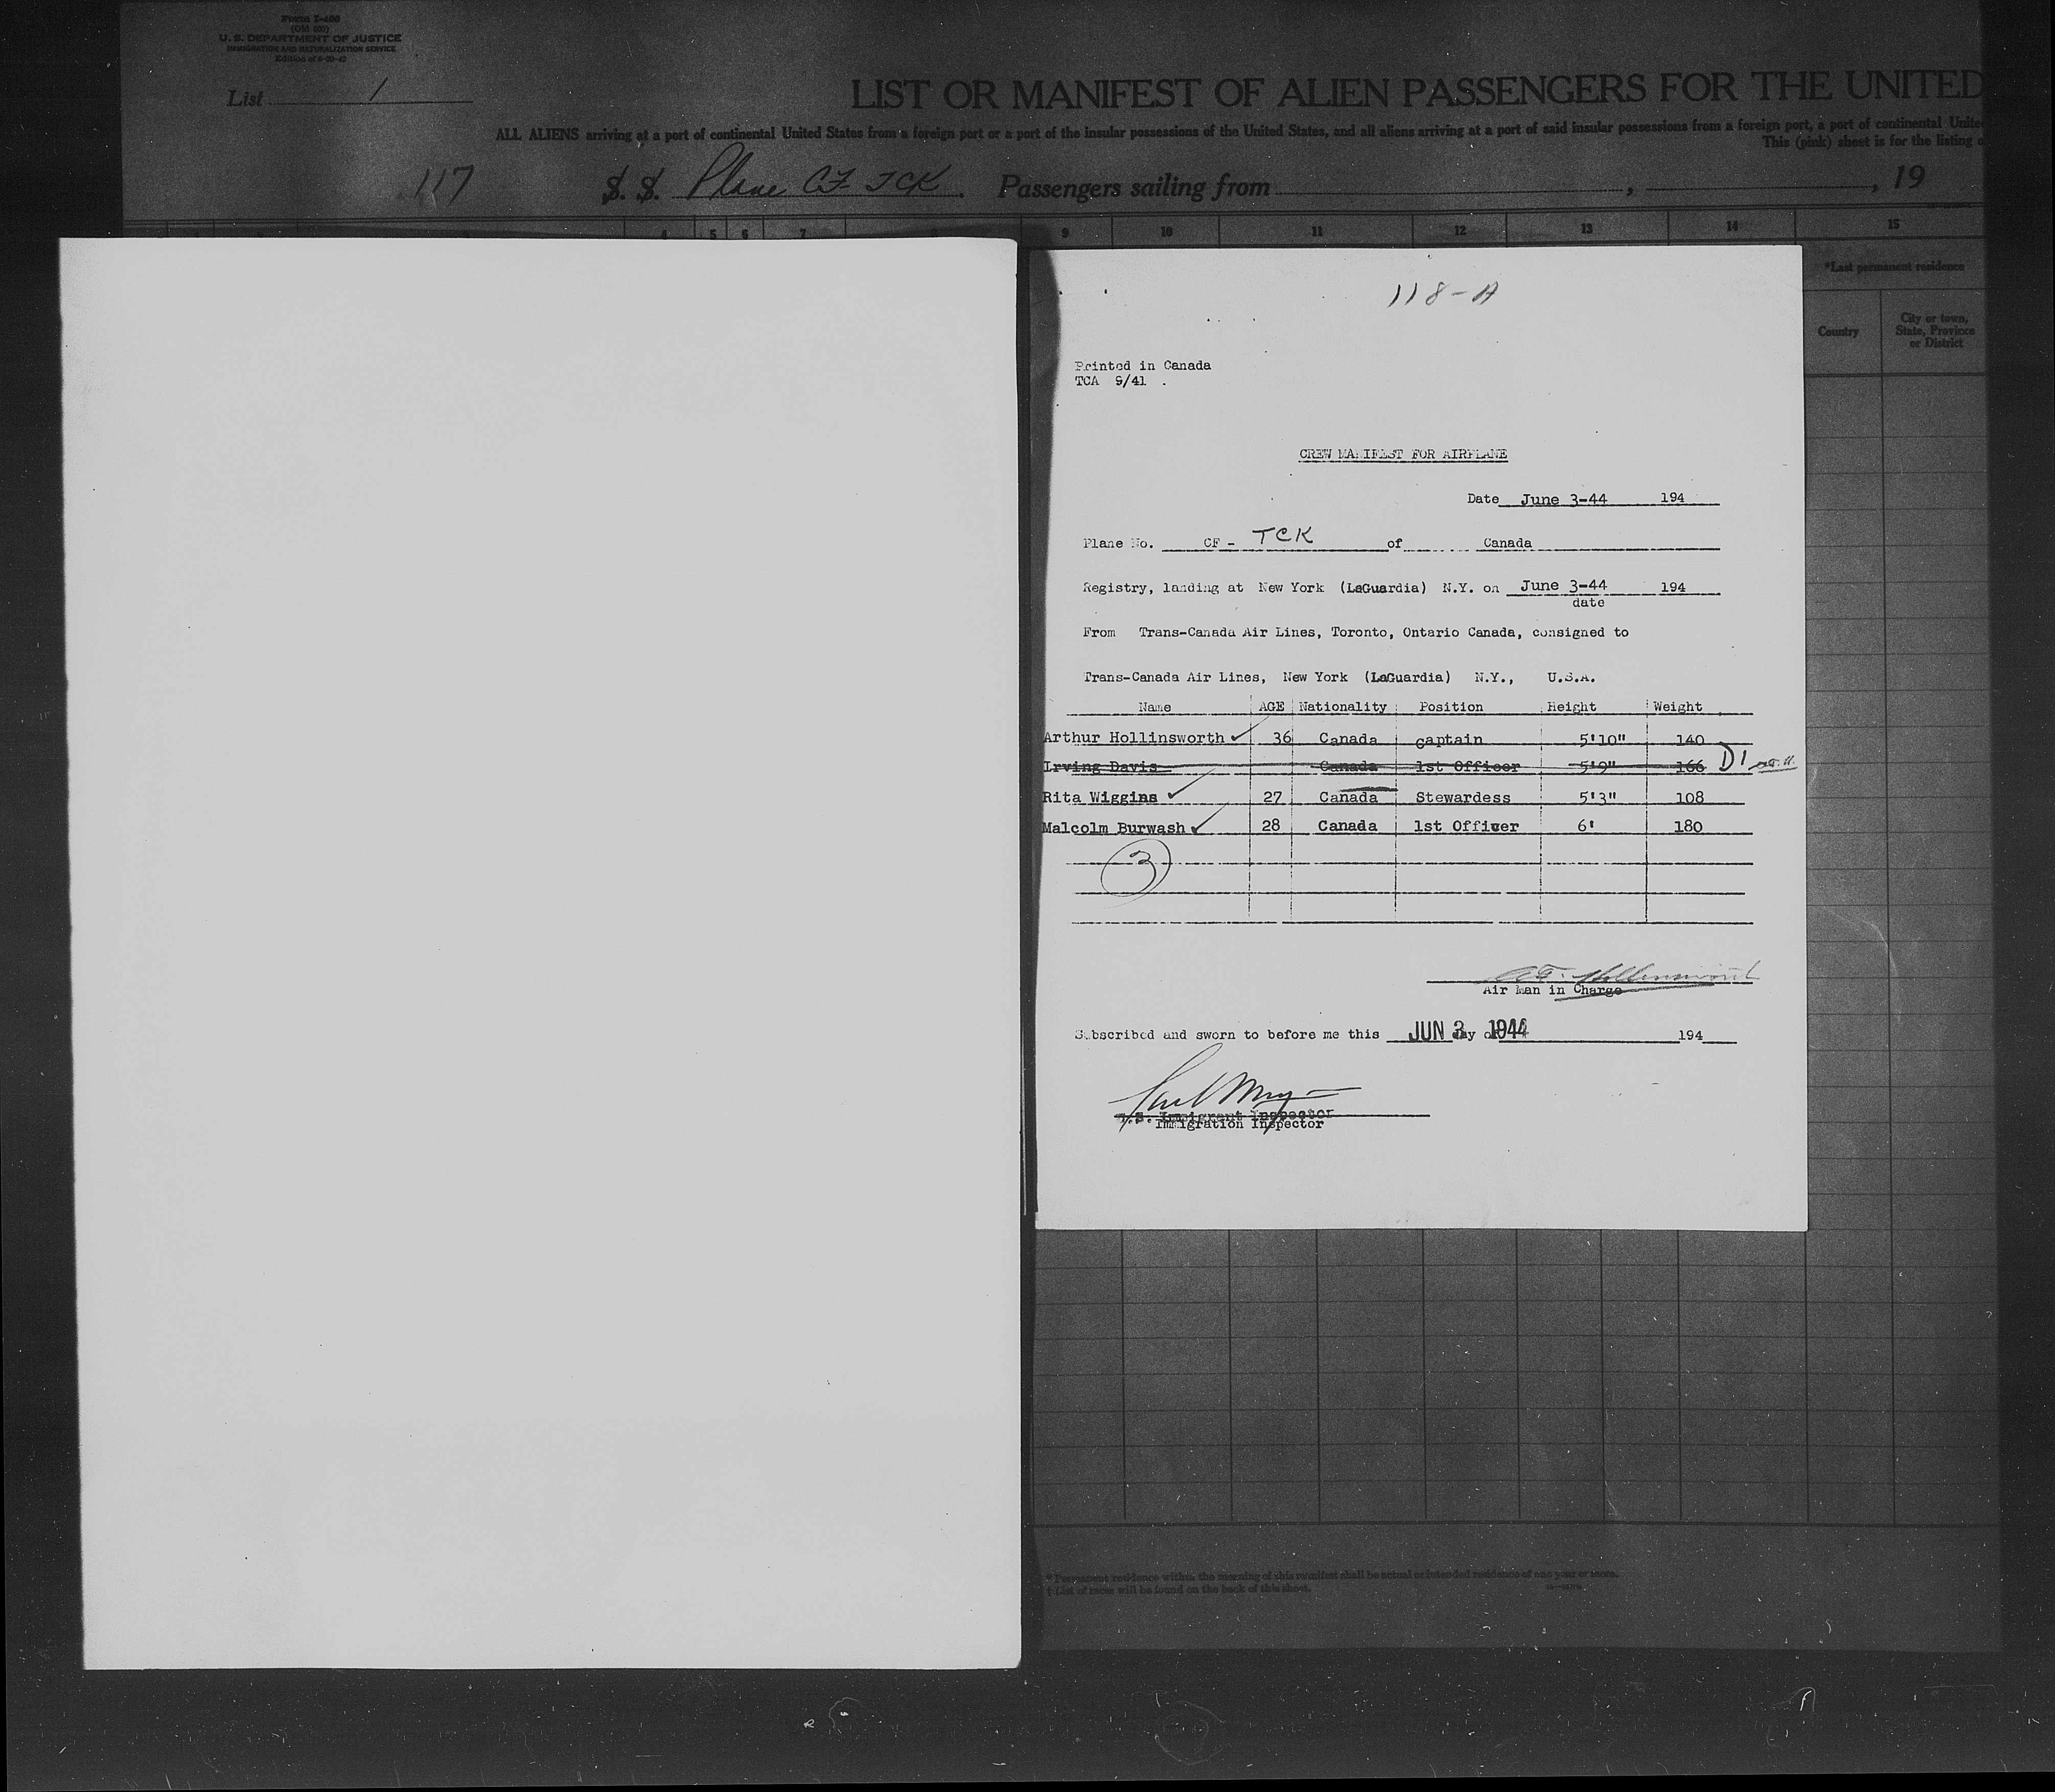 Form I-400
(Old 500)
U. S. DEPARTMENT OF JUSTICE
IMMIGRATION AND NATURALIZATION SERVICE
List 1
LIST OR MANIFEST OF ALIEN PASSENGERS FOR THE UNITED
ALL ALIENS arriving at a port of continental United States from a foreign port or a port of the insular possessions of the United States, and all aliens arriving at a port of said insular possessions from a foreign port, a port of continental Unite
This (pink) sheet is for the listing
117 S. S. Plane CF-TCK. Passengers sailing from , , 19
4 5 6 7 8 9 10 11 12 13 14 15
*Last permanent residence
Country
City or town,
State, Province
or District
118-A
Printed in Canada
TCA 9/41 .
CREW MANIFEST FOR AIRPLANE
Date June 3-44 194
Plane No. CF - TCK of Canada
Registry, landing at New York (LaGuardia) N.Y. on June 3-44 194
date
From Trans-Canada Air Lines, Toronto, Ontario Canada, consigned to
Trans-Canada Air Lines, New York (LaGuardia) N.Y., U.S.A.
Name AGE Nationality Position Height Weight
Arthur Hollinsworth ✓ 36 Canada captain 5'10" 140
Irving Davis Canada 1st Officer 5'9" 166 D1
Rita Wiggins ✓ 27 Canada Stewardess 5'3" 108
Malcolm Burwash ✓ 28 Canada 1st Officer 6' 180
3
Air Man in Charge
Subscribed and sworn to before me this JUN 3 day of 1944 194
U.S. Immigrant Inspector
Immigration Inspector
*Permanent residence within the meaning of this manifest shall be actual or intended residence of one year or more.
† List of races will be found on the back of this sheet.